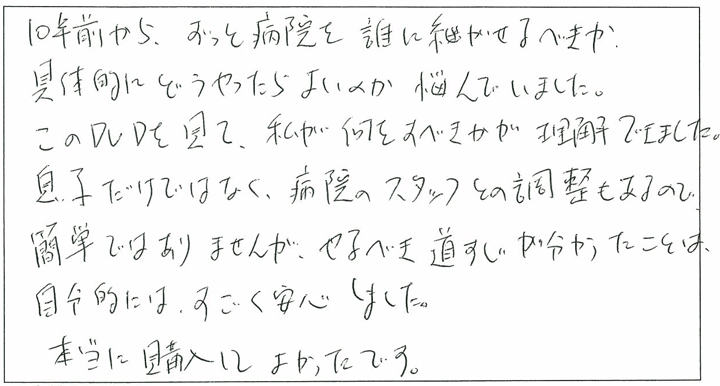 10年前から、ずっと病院を誰に継がせるべきか、
具体的にどうやったらよいのか悩んでいました。
このDVDを見て、私が何をすべきかが理解できました。
息子だけではなく、病院のスタッフとの調整もあるので、
簡単ではありませんが、やるべき道すじが分かったことは、
自分的には、すごく安心しました。
本当に購入してよかったです。